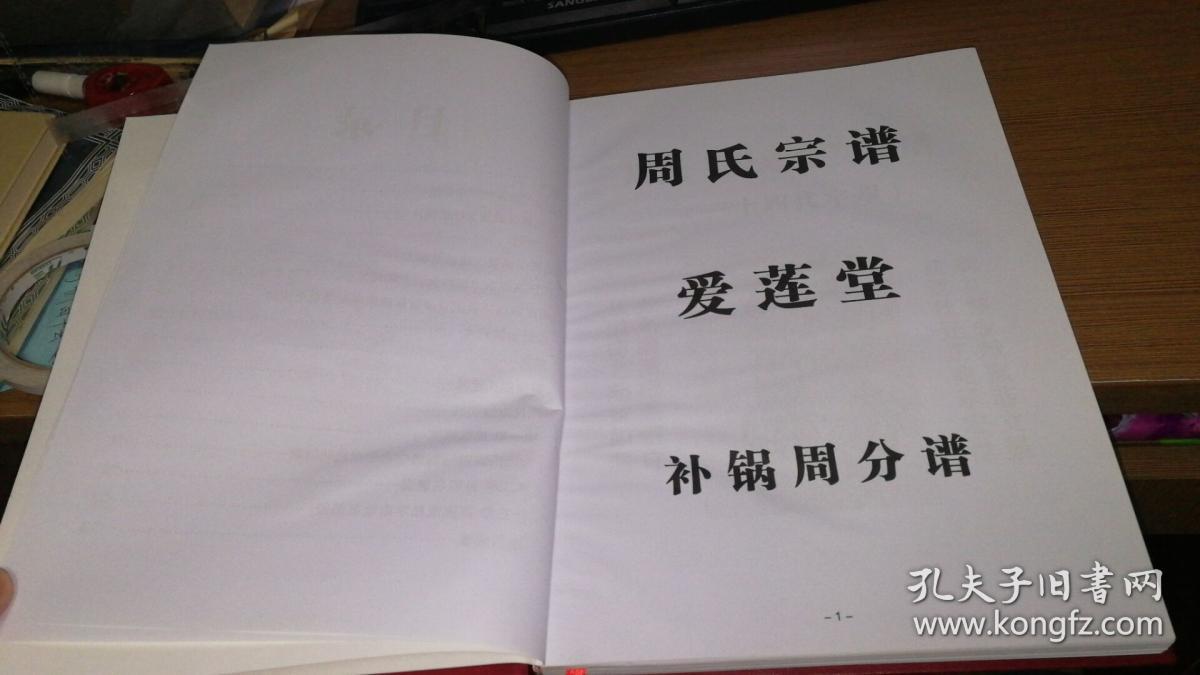 周氏宗谱
爱莲堂
补锅周分谱
-1-
孔夫子旧书网
www.kongfz.com